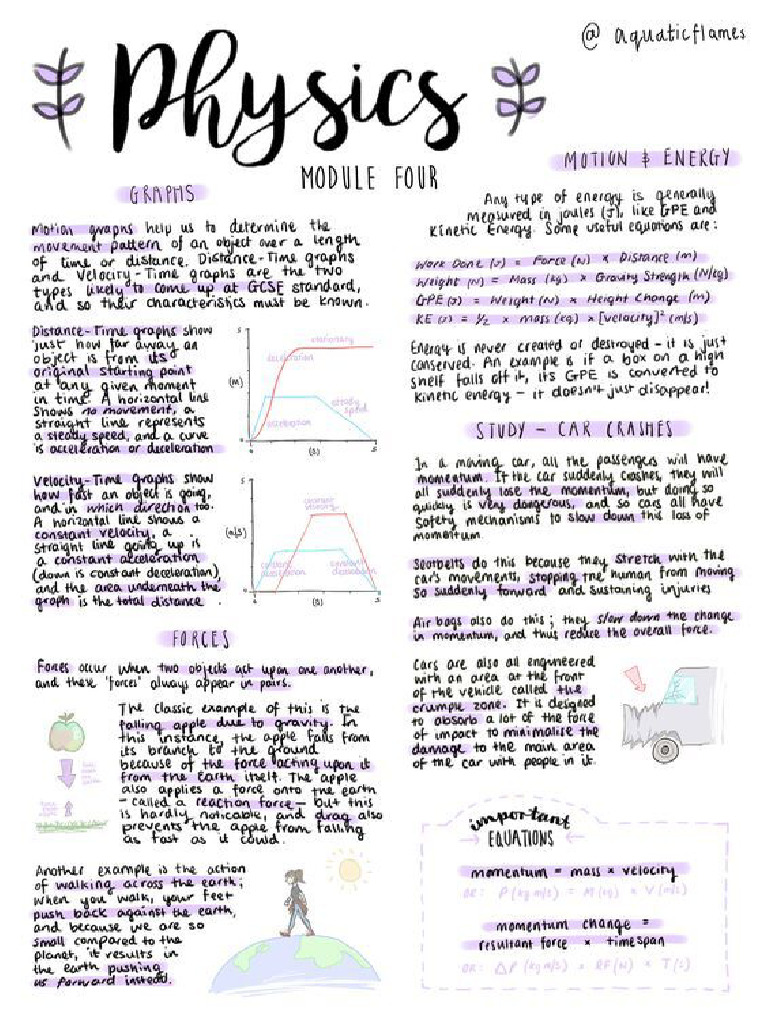 @ aquaticflames
Physics
MODULE FOUR
GRAPHS
Motion graphs help us to determine the
movement pattern of an object over a length
of time or distance. Distance-Time graphs
and Velocity-Time graphs are the two
types likely to come up at GCSE standard,
and so their characteristics must be known.
Distance-Time graphs show
just how far away an
object is from its
original starting point
at any given moment
in time. A horizontal line
shows no movement, a
straight line represents
a steady speed, and a curve
is acceleration or deceleration
stationary
deceleration
(m)
steady
speed
acceleration
(s)
Velocity-Time graphs show
how fast an object is going,
and in which direction too.
A horizontal line shows a
constant velocity, a
straight line going up is
a constant acceleration
(down is constant deceleration),
and the area underneath the
graph is the total distance.
constant
velocity
(m/s)
constant
acceleration
constant
deceleration
(s)
FORCES
Forces occur when two objects act upon one another,
and these 'forces' always appear in pairs.
The classic example of this is the
falling apple due to gravity. In
this instance, the apple falls from
its branch to the ground
because of the force acting upon it
from the Earth itself. The apple
also applies a force onto the earth
- called a reaction force - but this
is hardly noticable, and drag also
prevents the apple from falling
as fast as it could.
Another example is the action
of walking across the earth;
when you walk, your feet
push back against the earth,
and because we are so
small compared to the
planet, it results in
the earth pushing
us forward instead.
MOTION & ENERGY
Any type of energy is generally
measured in joules (J), like GPE and
Kinetic Energy. Some useful equations are:
Work Done (J) = Force (N) x Distance (m)
Weight (N) = Mass (kg) x Gravity Strength (N/kg)
GPE (J) = Weight (N) x Height Change (m)
KE (J) = 1/2 x Mass (kg) x [velocity]² (m/s)
Energy is never created or destroyed - it is just
conserved. An example is if a box on a high
shelf falls off it, its GPE is converted to
Kinetic energy - it doesn't just disappear!
STUDY - CAR CRASHES
In a moving car, all the passengers will have
momentum. If the car suddenly crashes, they will
all suddenly lose the momentum, but doing so
quickly is very dangerous, and so cars all have
safety mechanisms to slow down this loss of
momentum
Seatbelts do this because they stretch with the
car's movements, stopping the human from moving
so suddenly forward and sustaining injuries
Air bags also do this; they slow down the change
in momentum, and thus reduce the overall force.
Cars are also all engineered
with an area at the front
of the vehicle called the
crumple zone. It is designed
to absorb a lot of the force
of impact to minimalise the
damage to the main area
of the car with people in it.
important
EQUATIONS
momentum = mass x velocity
OR: P (kg m/s) = M (kg) x V (m/s)
momentum change =
resultant force x timespan
OR: ΔP (kg m/s) x RF (N) x T (s)